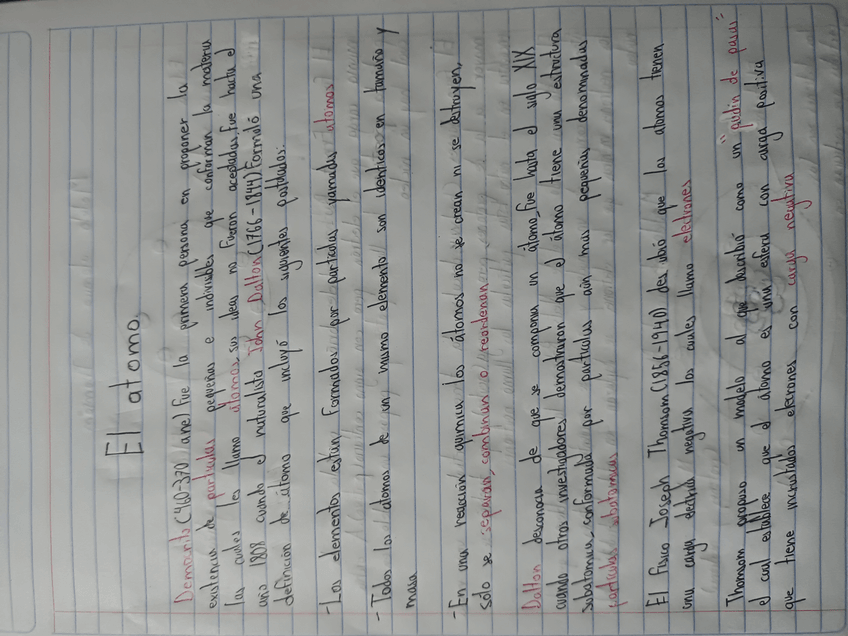 El atomo.
Democrito (460-370 ane) Fue la primera persona en proponer la
existencia de particulas pequeñas e indivisibles que conforman la materia
las cuales les llamo átomos, sus ideas no fueron aceptadas, fue hasta el
año 1808 cuando el naturalista John Dalton (1766-1844) Formuló una
definición de átomo que incluyó los siguientes postulados:
-Los elementos están Formados por particulas yamadas átomos
-Todos los átomos de un mismo elemento son identicos en tamaño y
masa
-En una reacción química los átomos no se crean ni se destruyen,
sólo se separan, combinan o reordenan
Dalton desconocia de que se componia un átomo, fue hasta el siglo XIX
cuando otros investigadores demostraron que el átomo tiene una estructura
subatomica, conformada por particulas aún mas pequeñas, denominadas
particulas subatomicas
El Fisico Joseph Thomsom (1856-1940) descubrió que los átomos tienen
una carga electrica negativa los cuales llamo electrones
Thomsom propuso un modelo al que describió como un "pudín de pasas"
el cual establece que el átomo es una esfera con carga positiva
que tiene incrustados electrones con carga negativa